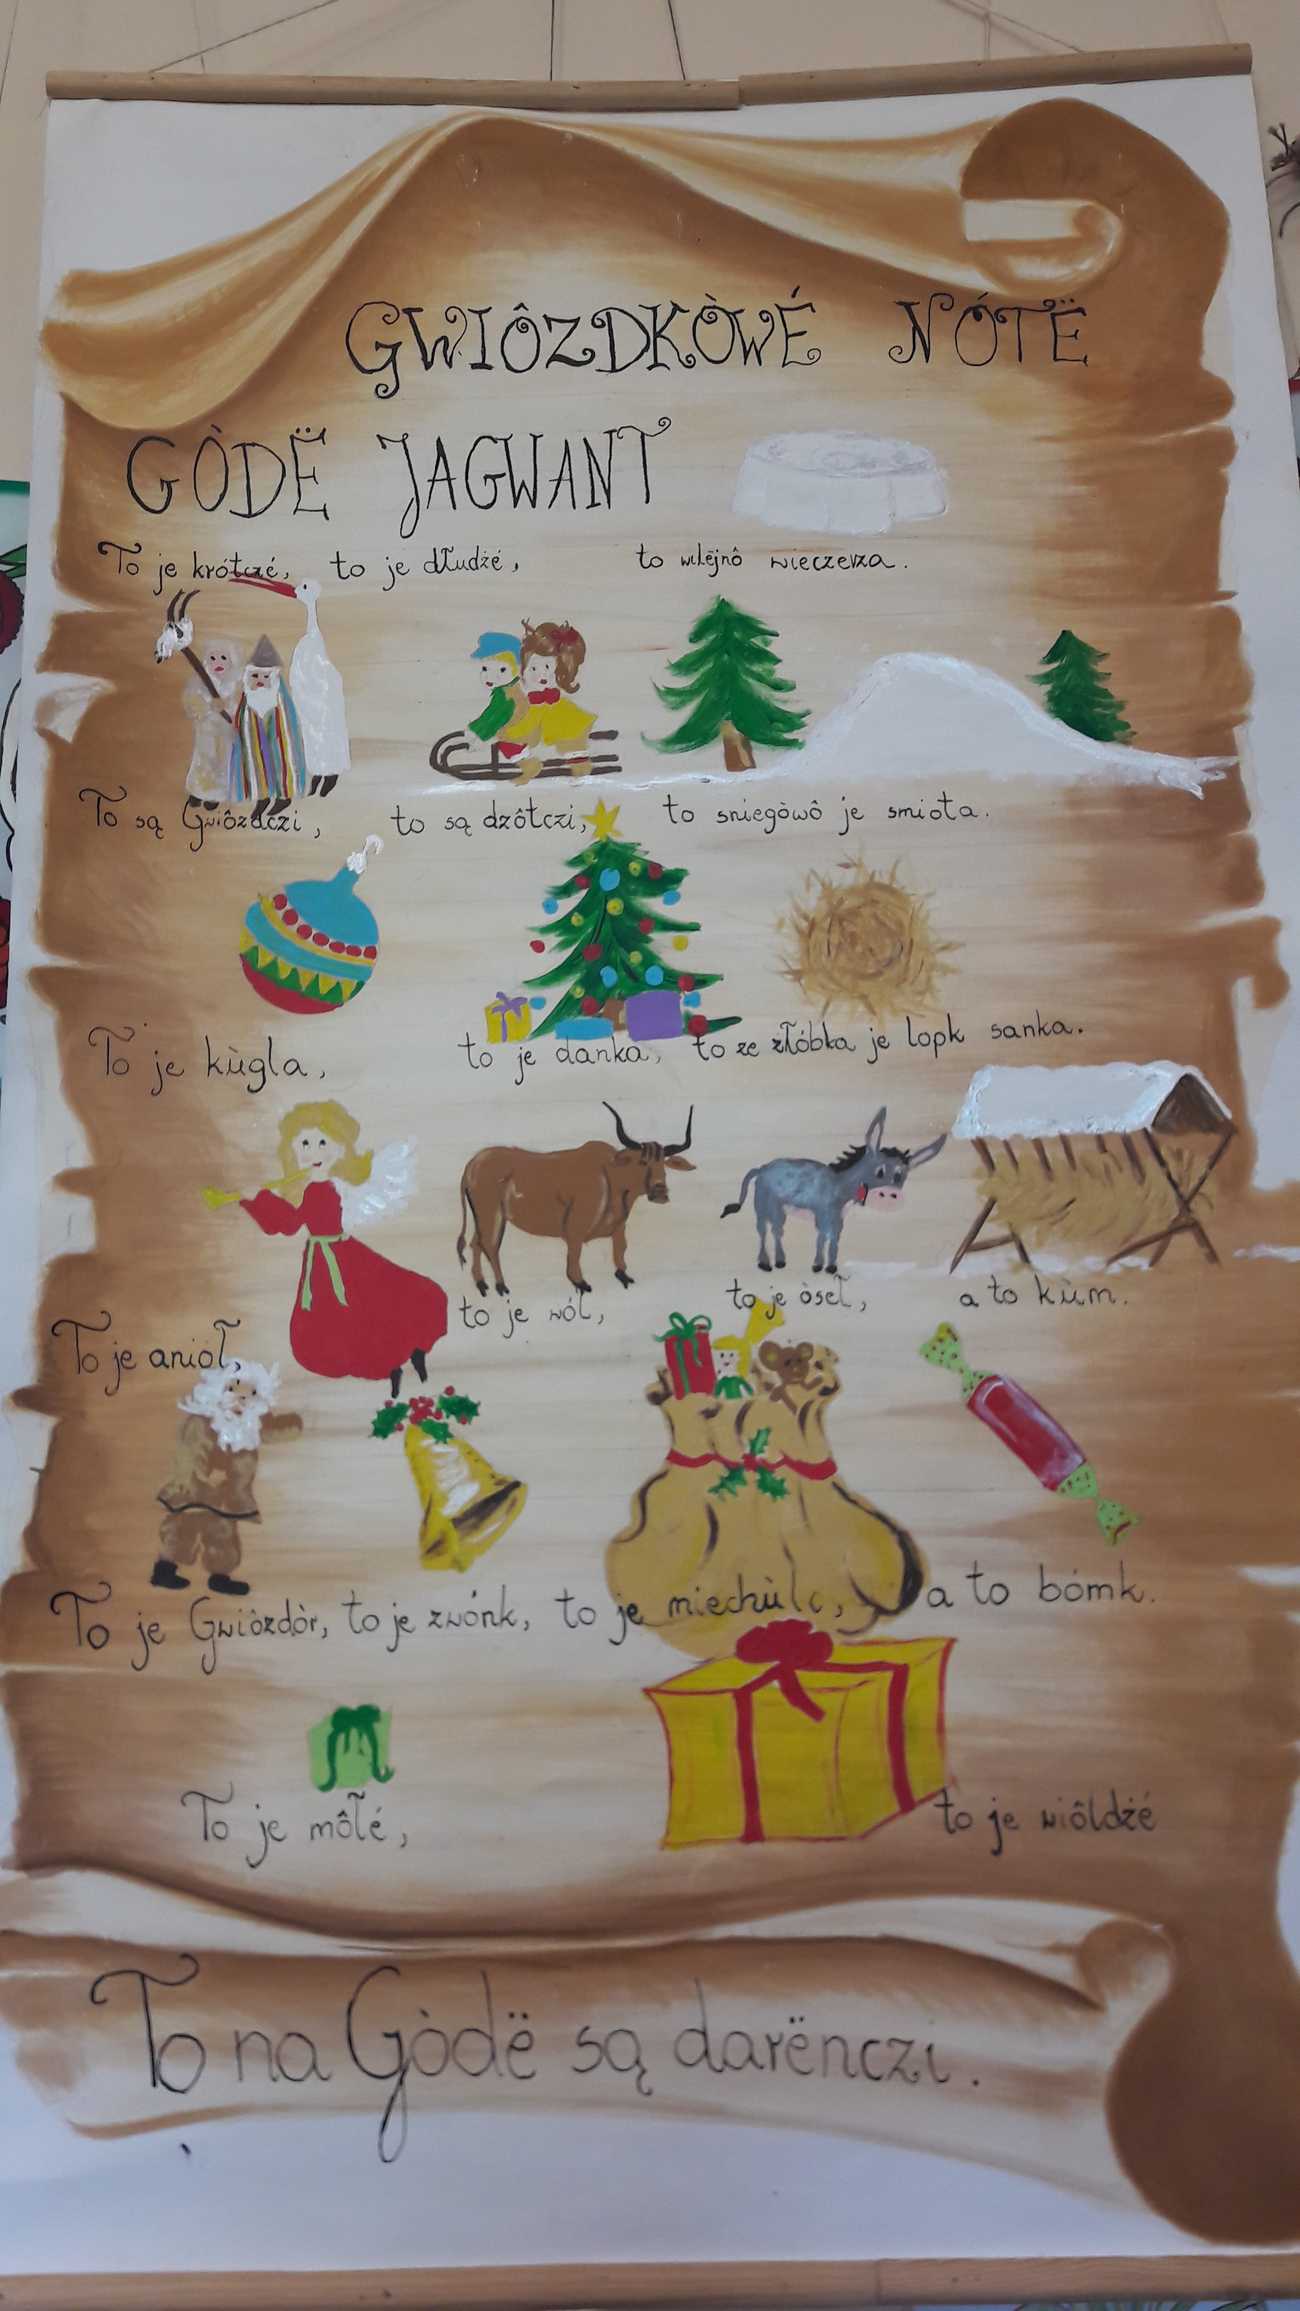 GWIÔZDKÒWÉ NÓTË
GÒDË JAGWANT
To je krótczé, to je dłudżé, to wilëjnô wieczerza.
To są Gwiôzdczi, to są dzôtczi, to sniegòwô je smiota.
To je kùgla, to je danka, to ze złóbka je lopk sanka.
To je anioł, to je wół, to je òseł, a to kùm.
To je Gwiôzdòr, to je zwónk, to je miechùlc, a to bómk.
To je môłé, to je wiôldżé
To na Gòdë są darënczi.